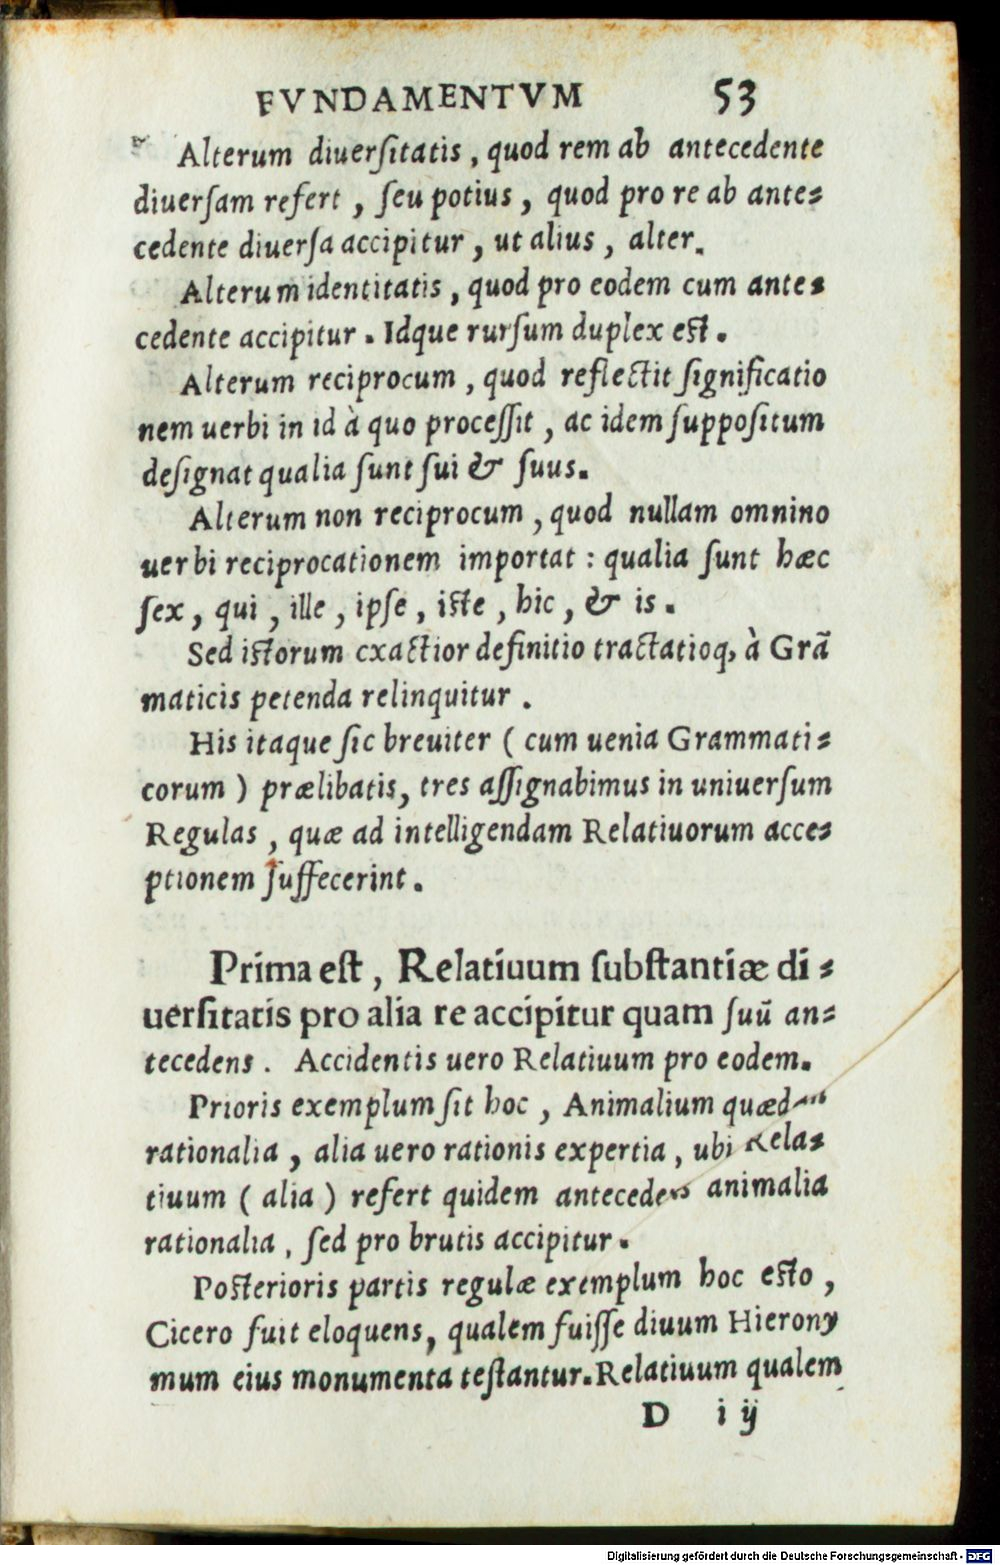 FVNDAMENTVM 53
Alterum diuerſitatis, quod rem ab antecedente
diuerſam refert, ſeu potius, quod pro re ab ante⸗
cedente diuerſa accipitur, ut alius, alter.
Alterum identitatis, quod pro eodem cum ante⸗
cedente accipitur. Idque rurſum duplex eſt.
Alterum reciprocum, quod reflectit ſignificatio
nem uerbi in id à quo proceſſit, ac idem ſuppoſitum
deſignat qualia ſunt ſui & ſuus.
Alterum non reciprocum, quod nullam omnino
uerbi reciprocationem importat: qualia ſunt hæc
ſex, qui, ille, ipſe, iſte, hic, & is.
Sed iſtorum exactior definitio tractatioq, à Grã
maticis petenda relinquitur.
His itaque ſic breuiter (cum uenia Grammati⸗
corum) prælibatis, tres aſſignabimus in uniuerſum
Regulas, quæ ad intelligendam Relatiuorum acce⸗
ptionem ſuffecerint.
Prima eſt, Relatiuum ſubſtantiæ di⸗
uerſitatis pro alia re accipitur quam ſuũ an⸗
tecedens. Accidentis uero Relatiuum pro eodem.
Prioris exemplum ſit hoc, Animalium quædam
rationalia, alia uero rationis expertia, ubi Rela⸗
tiuum (alia) refert quidem antecedens animalia
rationalia, ſed pro brutis accipitur.
Poſterioris partis regulæ exemplum hoc eſto,
Cicero fuit eloquens, qualem fuiſſe diuum Hierony
mum eius monumenta teſtantur. Relatiuum qualem
D iij
Digitalisierung gefördert durch die Deutsche Forschungsgemeinschaft - DFG